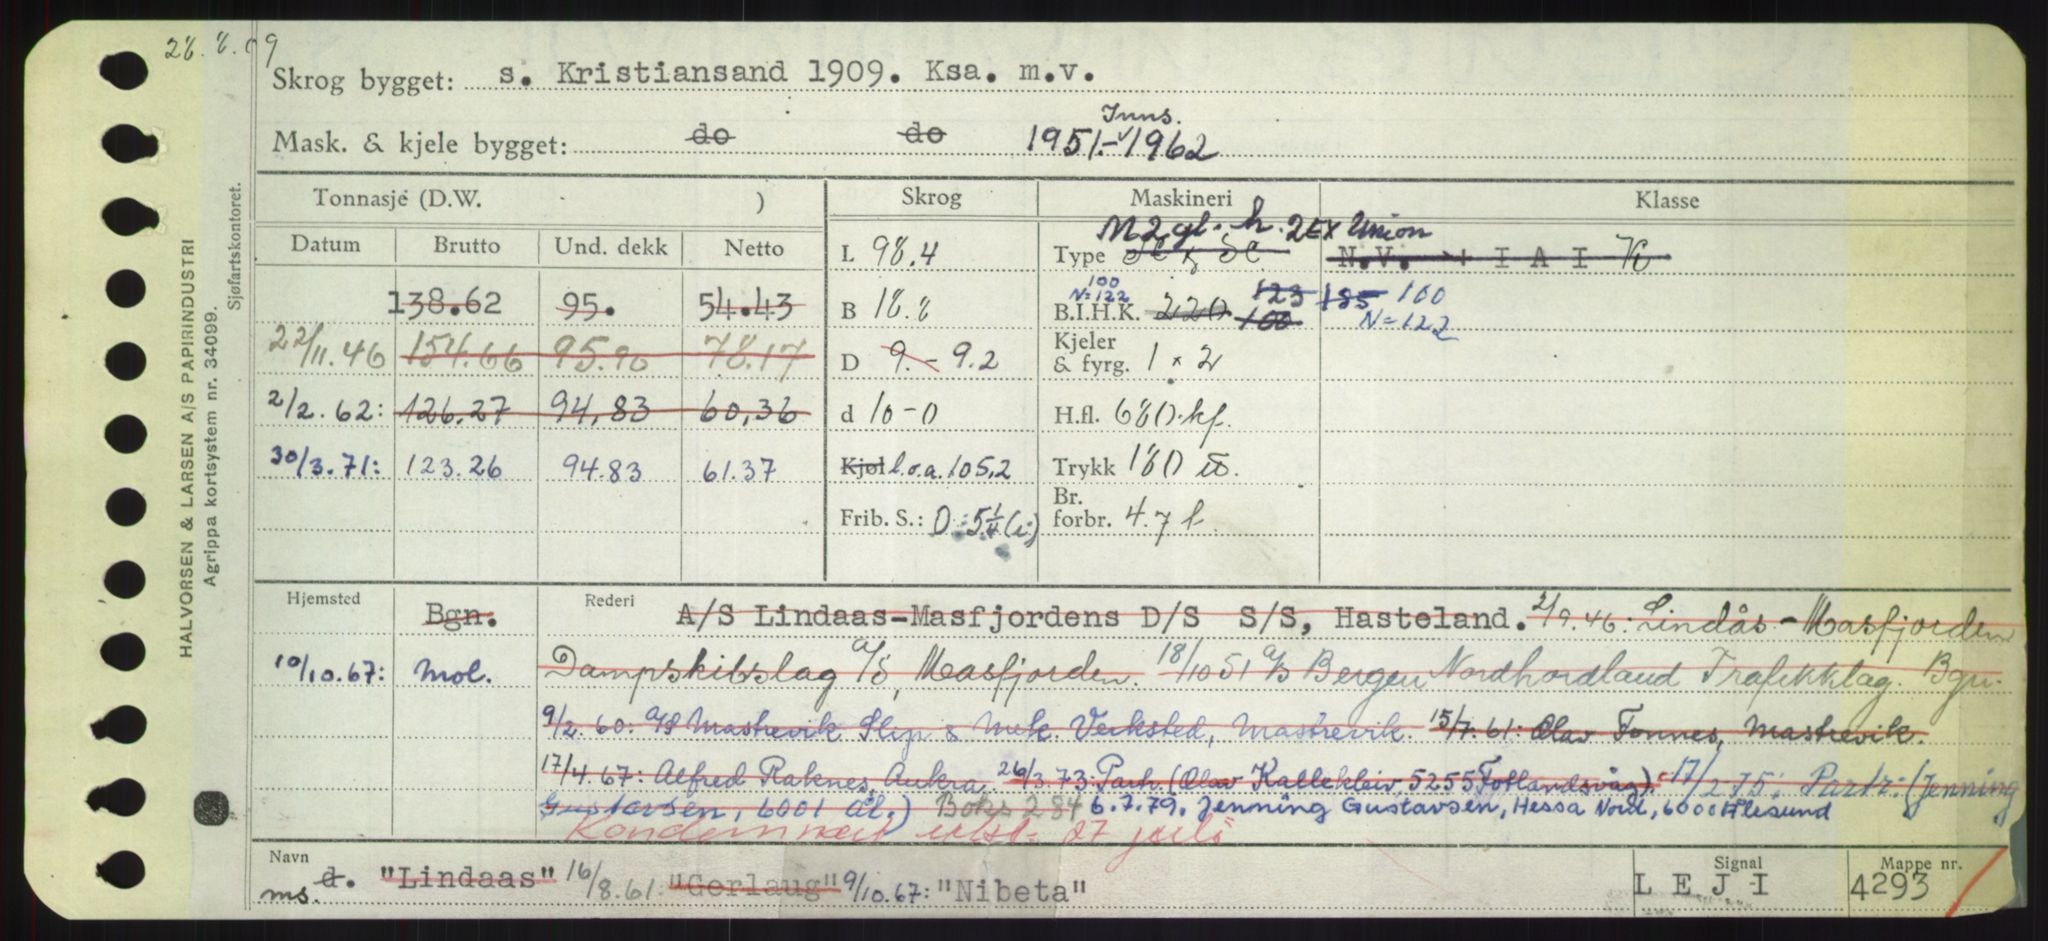 28.8.09
Skrog bygget: s. Kristiansand 1909. Ksa. m.v.
Mask. & kjele bygget: do do 1951.- Inns. 1962
Tonnasje (D.W. ) Skrog Maskineri Klasse
Datum Brutto Und. dekk Netto
L 98.4 Type M 2 gl. h. 2EX Union N.V. + I A I
138.62 95. 54.43 B 18.8 B.I.H.K. 100 N=122 220 123 100 185 100 N=122
22/11.46 154.66 95.90 78.17 D 9.- 9.2 Kjeler & fyrg. 1 x 2
2/2.62: 126.27 94,83 60,36 d 10-0 H.fl. 680 kf.
30/3.71: 123.26 94.83 61.37 Kjøl l.o.a. 105,2 Trykk 180
Frib. S.: 0 5 1/4 Br. forbr. 4.7 t
Hjemsted Bgn. Rederi A/S Lindaas-Masfjordens D/S S/S, Hasteland. 2/9.46: Lindås-Masfjorden
10/10.67: Mol. Dampskibslag A/S, Masfjorden. 18/10 51 A/S Bergen Nordhordland Trafikklag. Bgn.
9/2.60: A/S Mastrevik Slip & Mek. Verksted, Mastrevik. 15/7.61: Olav Fonnes, Mastrevik.
17/4.67: Alfred Raknes, Aukra. 26/3.73: Partr. (Olav Kallekleiv, 5255 Fotlandsvåg). 17/2.75: Partr. (Jenning
Gustavsen, 6001 Ål.) Boks 284 6.7.79. Jenning Gustavsen, Hessa Nord, 6000 Ålesund
Kondemnert
Navn ms. d. "Lindaas" 16/8.61: "Gerlaug" 9/10.67: "Nibeta" Signal L E J I Mappe nr. 4293
HALVORSEN & LARSEN A/S PAPIRINDUSTRI
Agrippa kortsystem nr. 34099.
Sjøfartskontoret.